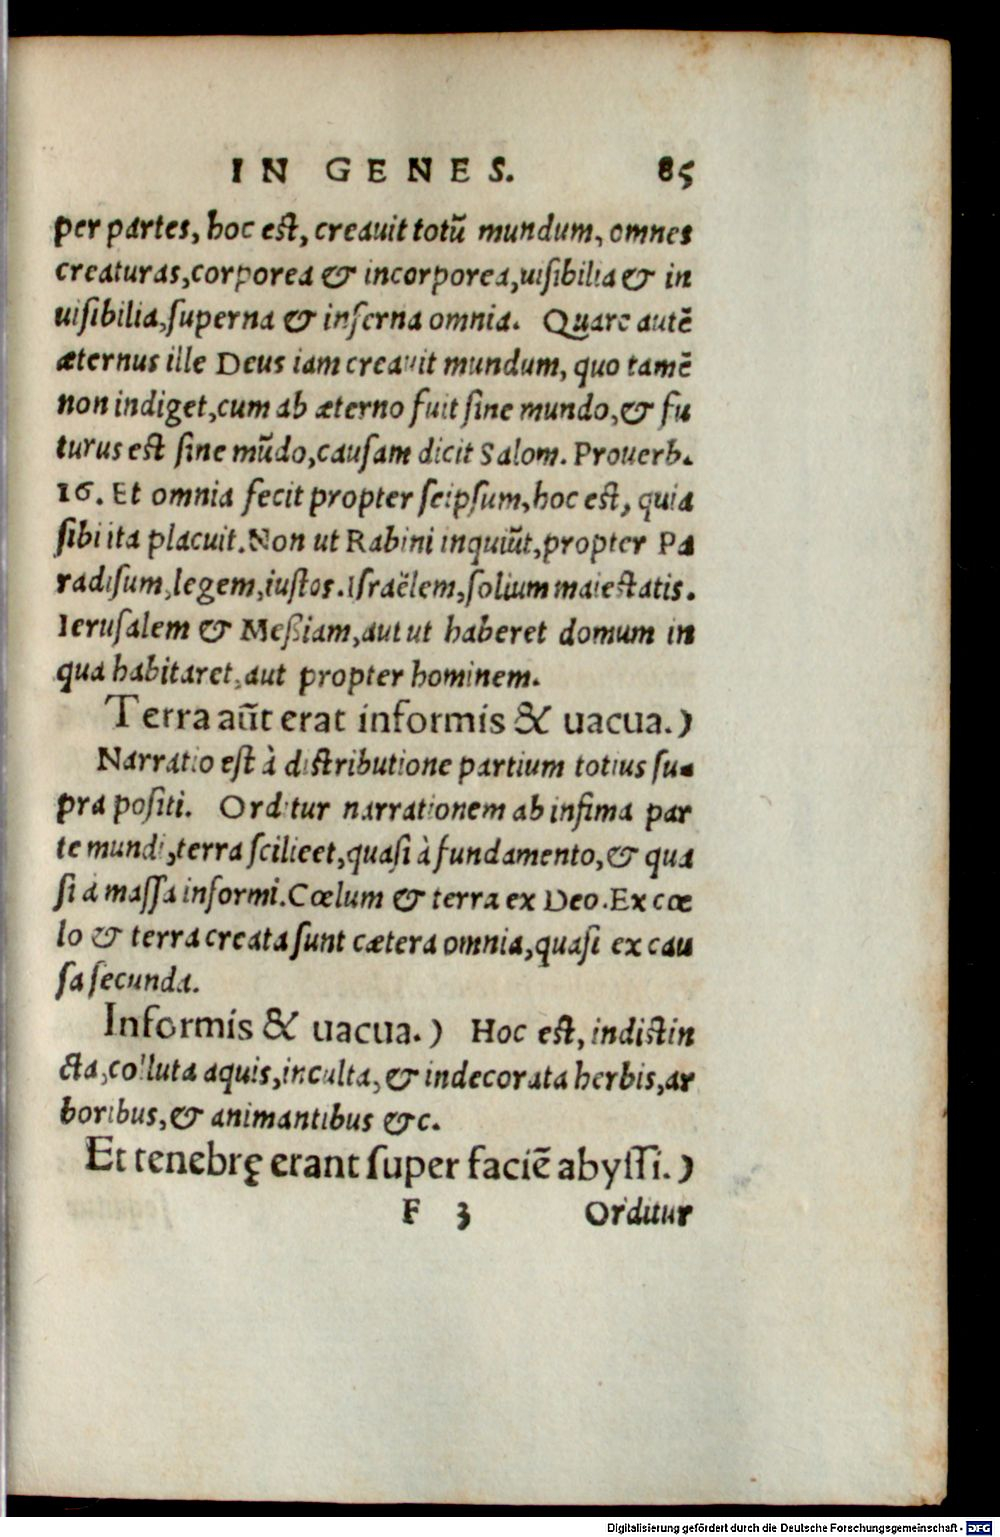 IN GENES. 85
per partes, hoc est, creauit totū mundum, omnes
creaturas, corporea & incorporea, uisibilia & in
uisibilia, superna & inferna omnia. Quare autē
æternus ille Deus iam creauit mundum, quo tamē
non indiget, cum ab æterno fuit sine mundo, & fu
turus est sine mūdo, causam dicit Salom. Prouerb.
16. Et omnia fecit propter seipsum, hoc est, quia
sibi ita placuit. Non ut Rabini inquiūt, propter Pa
radisum, legem, iustos. Israëlem, solium maiestatis.
Ierusalem & Meßiam, aut ut haberet domum in
qua habitaret, aut propter hominem.
Terra aūt erat informis & uacua.)
Narratio est à distributione partium totius su-
pra positi. Orditur narrationem ab infima par
te mundi, terra scilicet, quasi à fundamento, & qua
si a massa informi. Cœlum & terra ex Deo. Ex cœ
lo & terra creata sunt cætera omnia, quasi ex cau
sa secunda.
Informis & uacua.) Hoc est, indistin
cta, colluta aquis, inculta, & indecorata herbis, ar
boribus, & animantibus &c.
Et tenebrę erant super faciē abyssi.)
F 3 Orditur
Digitalisierung gefördert durch die Deutsche Forschungsgemeinschaft - DFG